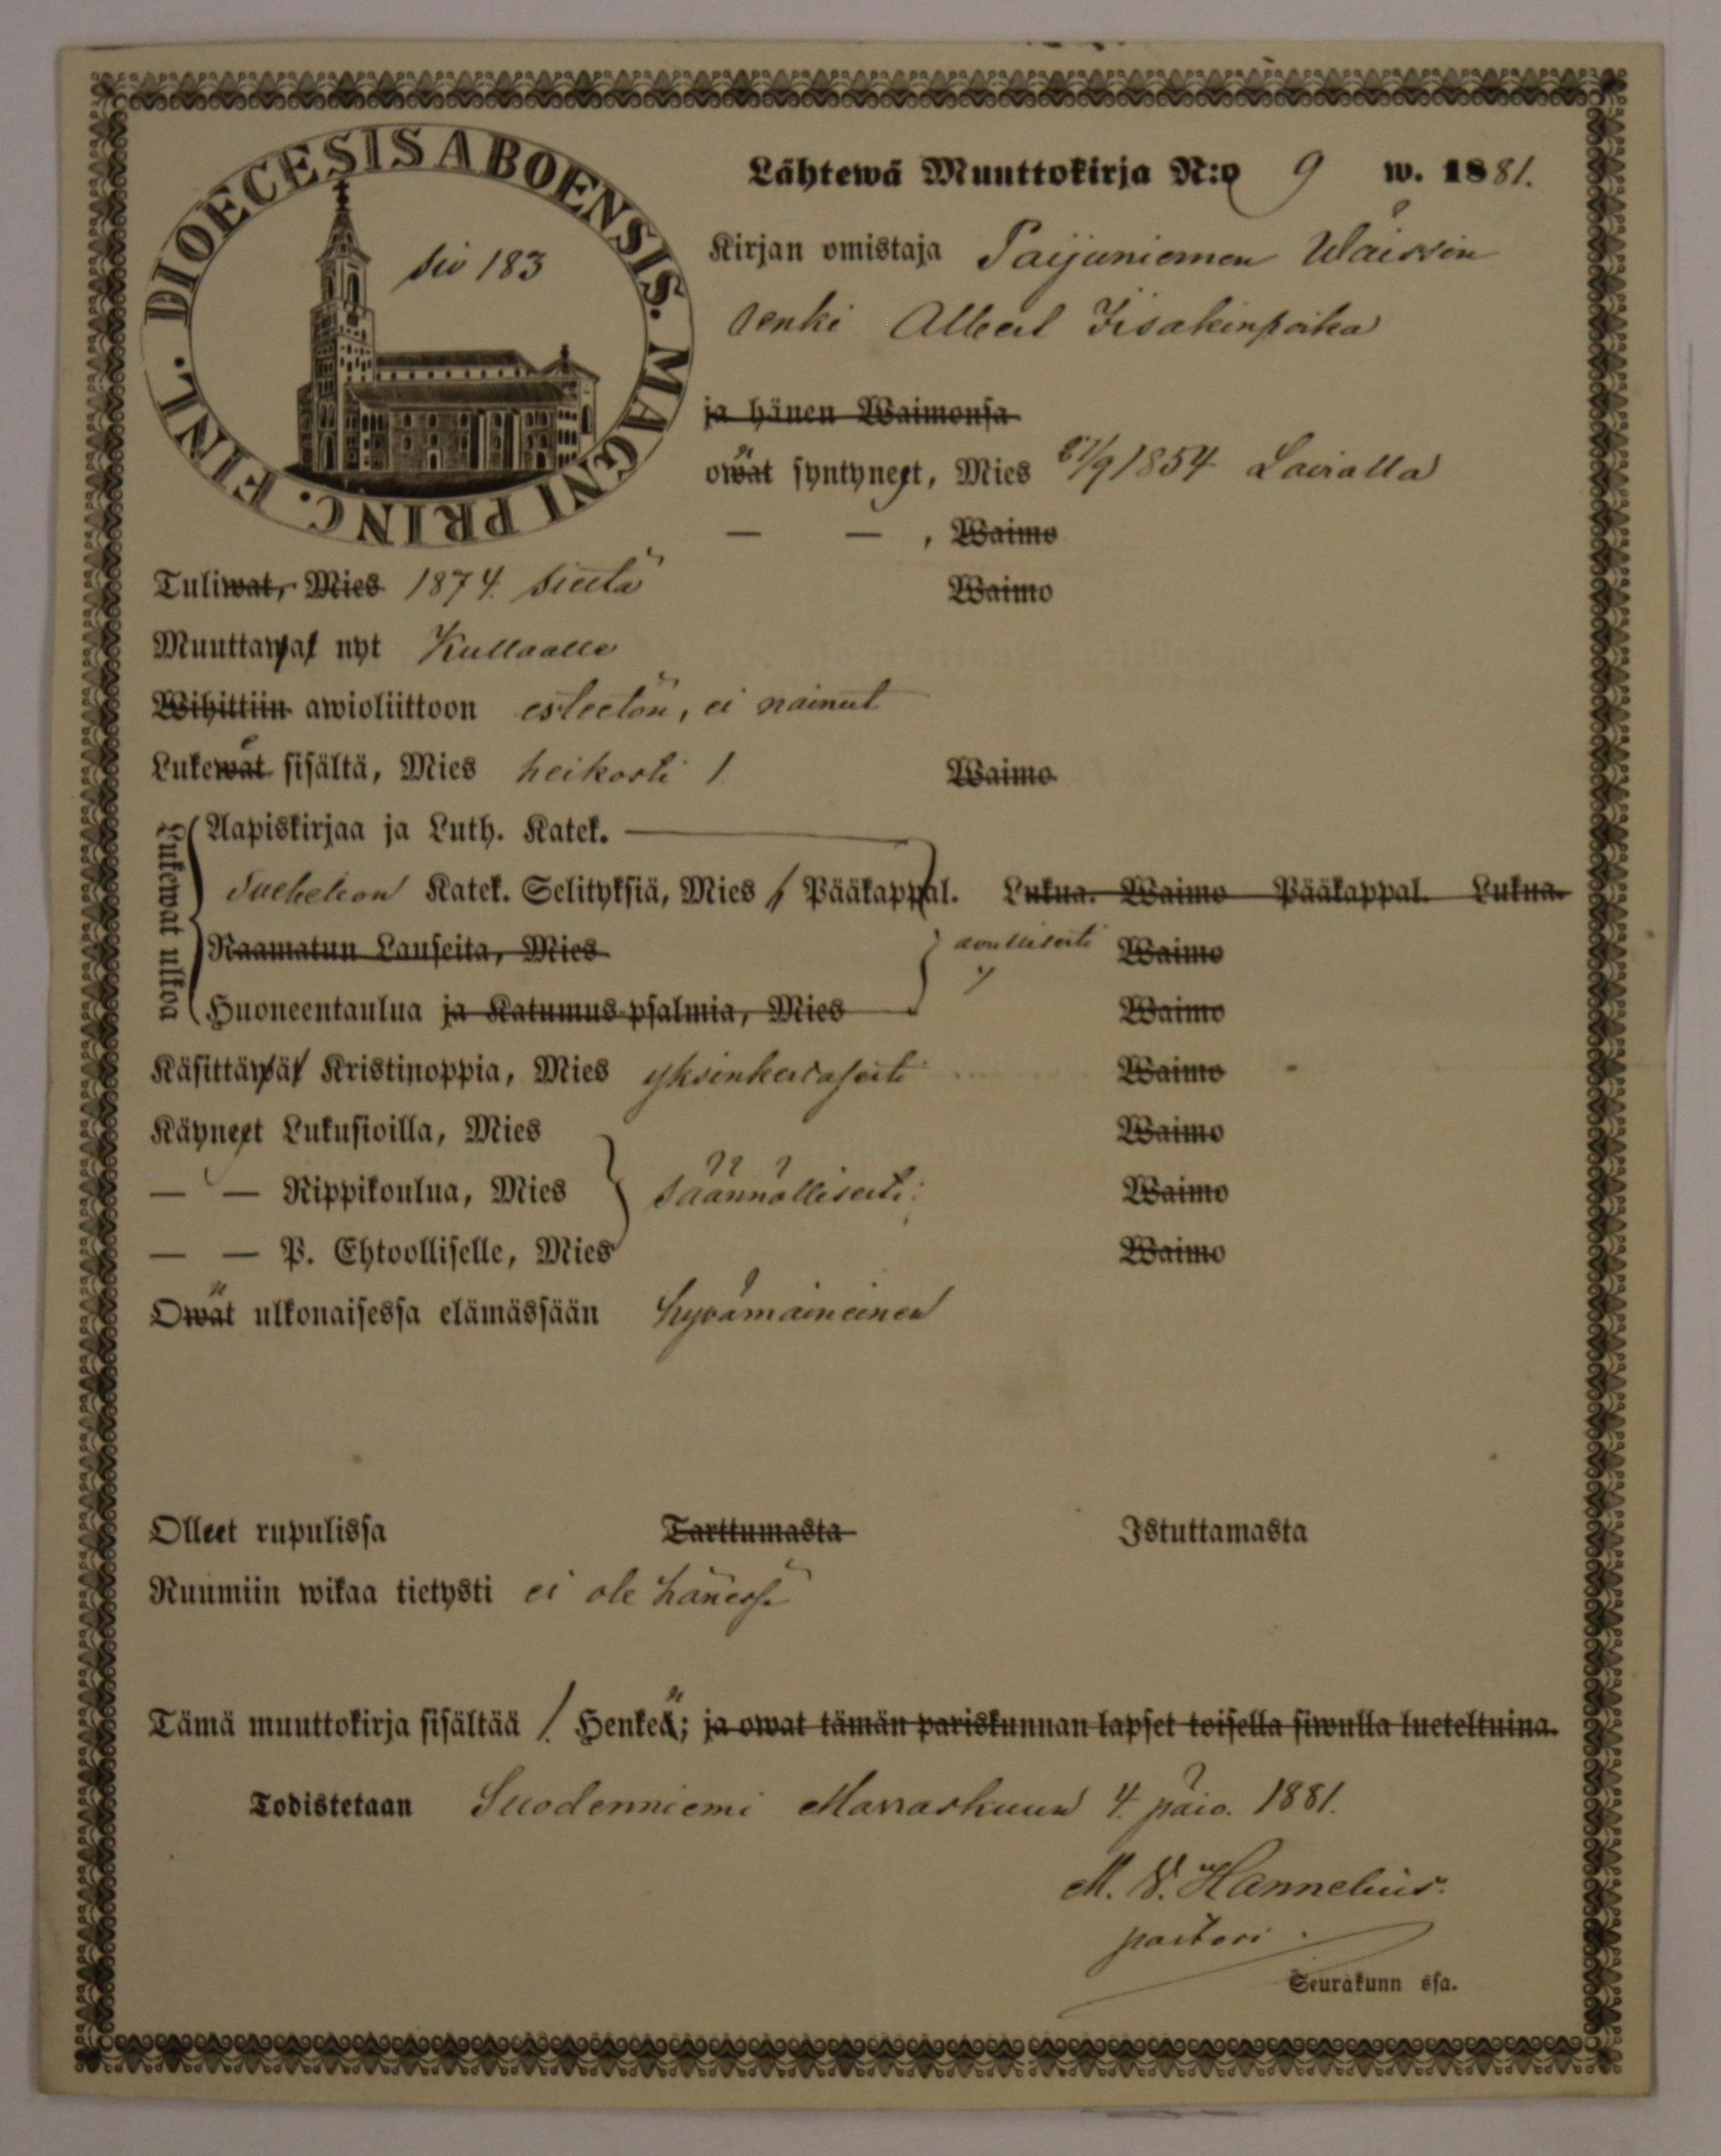 DIOECESIS ABOENSIS. MAGNI PRINC. FINL.
siv 183
Lähtewä Muuttokirja N:o 9 w. 1881.
Kirjan omistaja Paijuniemen Wäissin
renki Albert Iisakinpoika
ja hänen Waimonsa
owat syntyneet, Mies 27/9 1854 Lavialla
— — , Waimo
Tuliwat, Mies 1874 sieltä Waimo
Muuttawat nyt Kullaalle
Wihittiin awioliittoon esteetön, ei nainut
Lukewat sisältä, Mies heikosti 1 Waimo
Lukewat ulkoa
Aapiskirjaa ja Luth. Katek.
Suebelion Katek. Selityksiä, Mies / Pääkappal. Lukua. Waimo Pääkappal. Lukua.
Raamatun Lauseita, Mies Waimo
Huoneentaulua ja Katumus-psalmia, Mies Waimo
Käsittäwät Kristinoppia, Mies yksinkertasesti Waimo
Käyneet Lukusioilla, Mies Waimo
— — Rippikoulua, Mies säännöllisesti Waimo
— — P. Ehtoolliselle, Mies Waimo
Owat ulkonaisessa elämässään hyvämaineinen
Olleet rupulissa Tarttumasta Istuttamasta
Ruumiin wikaa tietysti ei ole hänessä
Tämä muuttokirja sisältää 1. Henkeä; ja owat tämän pariskunnan lapset toisella siwulla lueteltuina.
Todistetaan Suodenniemi Marraskuun 4. päiv. 1881.
M. V. Hannelius.
pastori.
Seurakunn ssa.